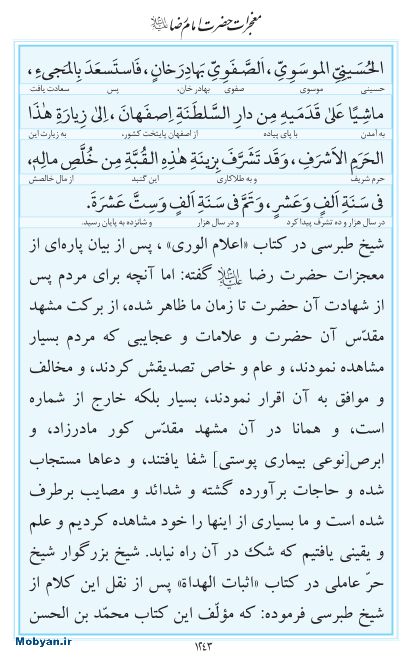 معجزات حضرت امام رضا علیه‌السلام
الحُسَينِيِّ الموسَوِيِّ، الصَّفَوِيِّ بَهادِرخانٍ، فَاستَسعَدَ بِالمَجیءِ،
حسینی موسوی صفوی بهادر خان، پس سعادت یافت
ماشِيًا عَلیٰ قَدَمَيهِ مِن دارِ السَّلطَنَةِ اِصفَهانَ، اِلیٰ زِيارَةِ هٰذَا
به آمدن با پای پیاده از اصفهان پایتخت کشور، به زیارت این
الحَرَمِ الاَشرَفِ، وَقَد تَشَرَّفَ بِزينَةِ هٰذِهِ القُبَّةِ مِن خُلَّصِ مالِه،
حرم شریف و به طلاکاری این گنبد از مال خالصش
فی سَنَةِ اَلفٍ وَعَشرٍ، وَتَمَّ فی سَنَةِ اَلفٍ وَسِتَّ عَشرَةَ.
در سال هزار و ده تشرف پیدا کرد و در سال هزار و شانزده به پایان رسید.
شیخ طبرسی در کتاب «اعلام الوری»، پس از بیان پاره‌ای از
معجزات حضرت رضا علیه‌السلام گفته: اما آنچه برای مردم پس
از شهادت آن حضرت تا زمان ما ظاهر شده، از برکت مشهد
مقدّس آن حضرت و علامات و عجایبی که مردم بسیار
مشاهده نمودند، و عام و خاص تصدیقش کردند، و مخالف
و موافق به آن اقرار نمودند، بسیار بلکه خارج از شماره
است، و همانا در آن مشهد مقدّس کور مادرزاد، و
ابرص[نوعی بیماری پوستی] شفا یافتند، و دعاها مستجاب
شده و حاجات برآورده گشته و شدائد و مصایب برطرف
شده است و ما بسیاری از اینها را خود مشاهده کردیم و علم
و یقینی یافتیم که شک در آن راه نیابد. شیخ بزرگوار شیخ
حرّ عاملی در کتاب «اثبات الهداة» پس از نقل این کلام از
شیخ طبرسی فرموده: که مؤلّف این کتاب محمّد بن الحسن
۱۲۴۳
Mobyan.ir